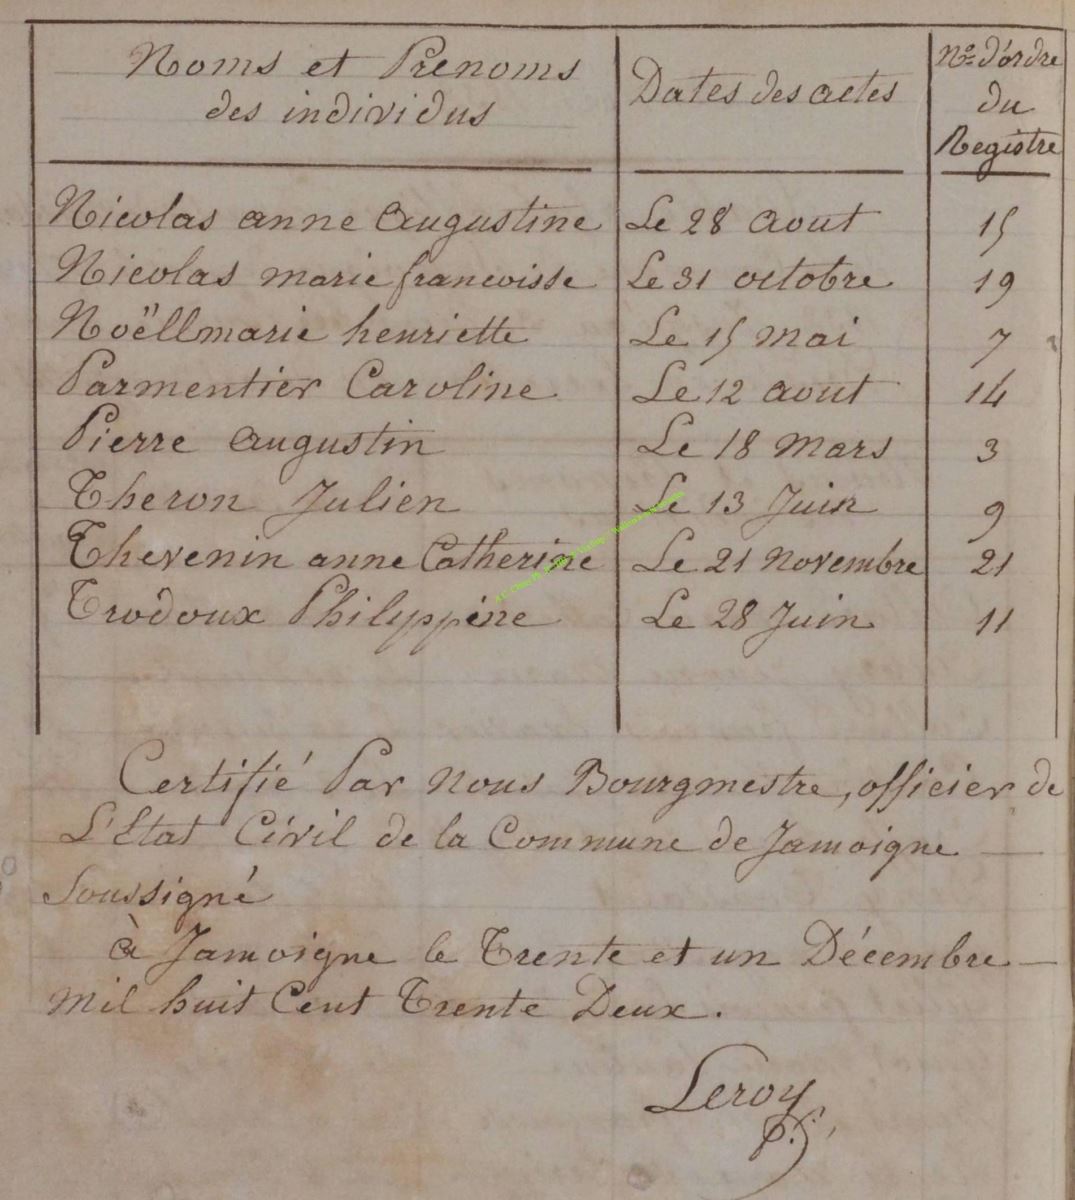 Noms et Prenoms
des individus
Dates des actes
No. d'ordre
du
Registre
Nicolas anne Augustine Le 28 aout 15
Nicolas marie francoisse Le 31 octobre 19
Noëllmarie henriette Le 15 Mai 7
Parmentier Caroline Le 12 aout 14
Pierre augustin Le 18 Mars 3
Theron Julien Le 13 Juin 9
Thevenin anne Catherine Le 21 Novembre 21
Trodoux Philyppine Le 28 Juin 11
Certifié Par Nous Bourgmestre, officier de
L'Etat Civil de la Commune de Jamoigne
Soussigné
à Jamoigne le Trente et un Décembre
Mil huit Cent Trente Deux.
Leroy